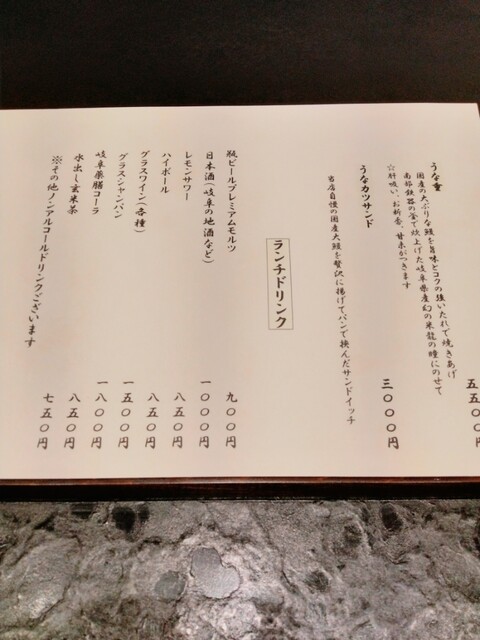 うな重 五五〇〇円
国産の大ぶりな鰻を旨味とコクの強いたれで焼きあげ
南部鉄器の釜で炊上げた岐阜県産幻の米龍の瞳にのせて
☆肝吸い、お新香、甘味がつきます
うなカツサンド 三〇〇〇円
当店自慢の国産大鰻を贅沢に揚げてパンで挟んだサンドイッチ
ランチドリンク
瓶ビールプレミアムモルツ 九〇〇円
日本酒(岐阜の地酒など) 一〇〇〇円
レモンサワー 八五〇円
ハイボール 八五〇円
グラスワイン(各種) 一五〇〇円
グラスシャンパン 一八〇〇円
岐阜薬膳コーラ 八五〇円
水出し玄米茶 七五〇円
※その他ノンアルコールドリンクございます